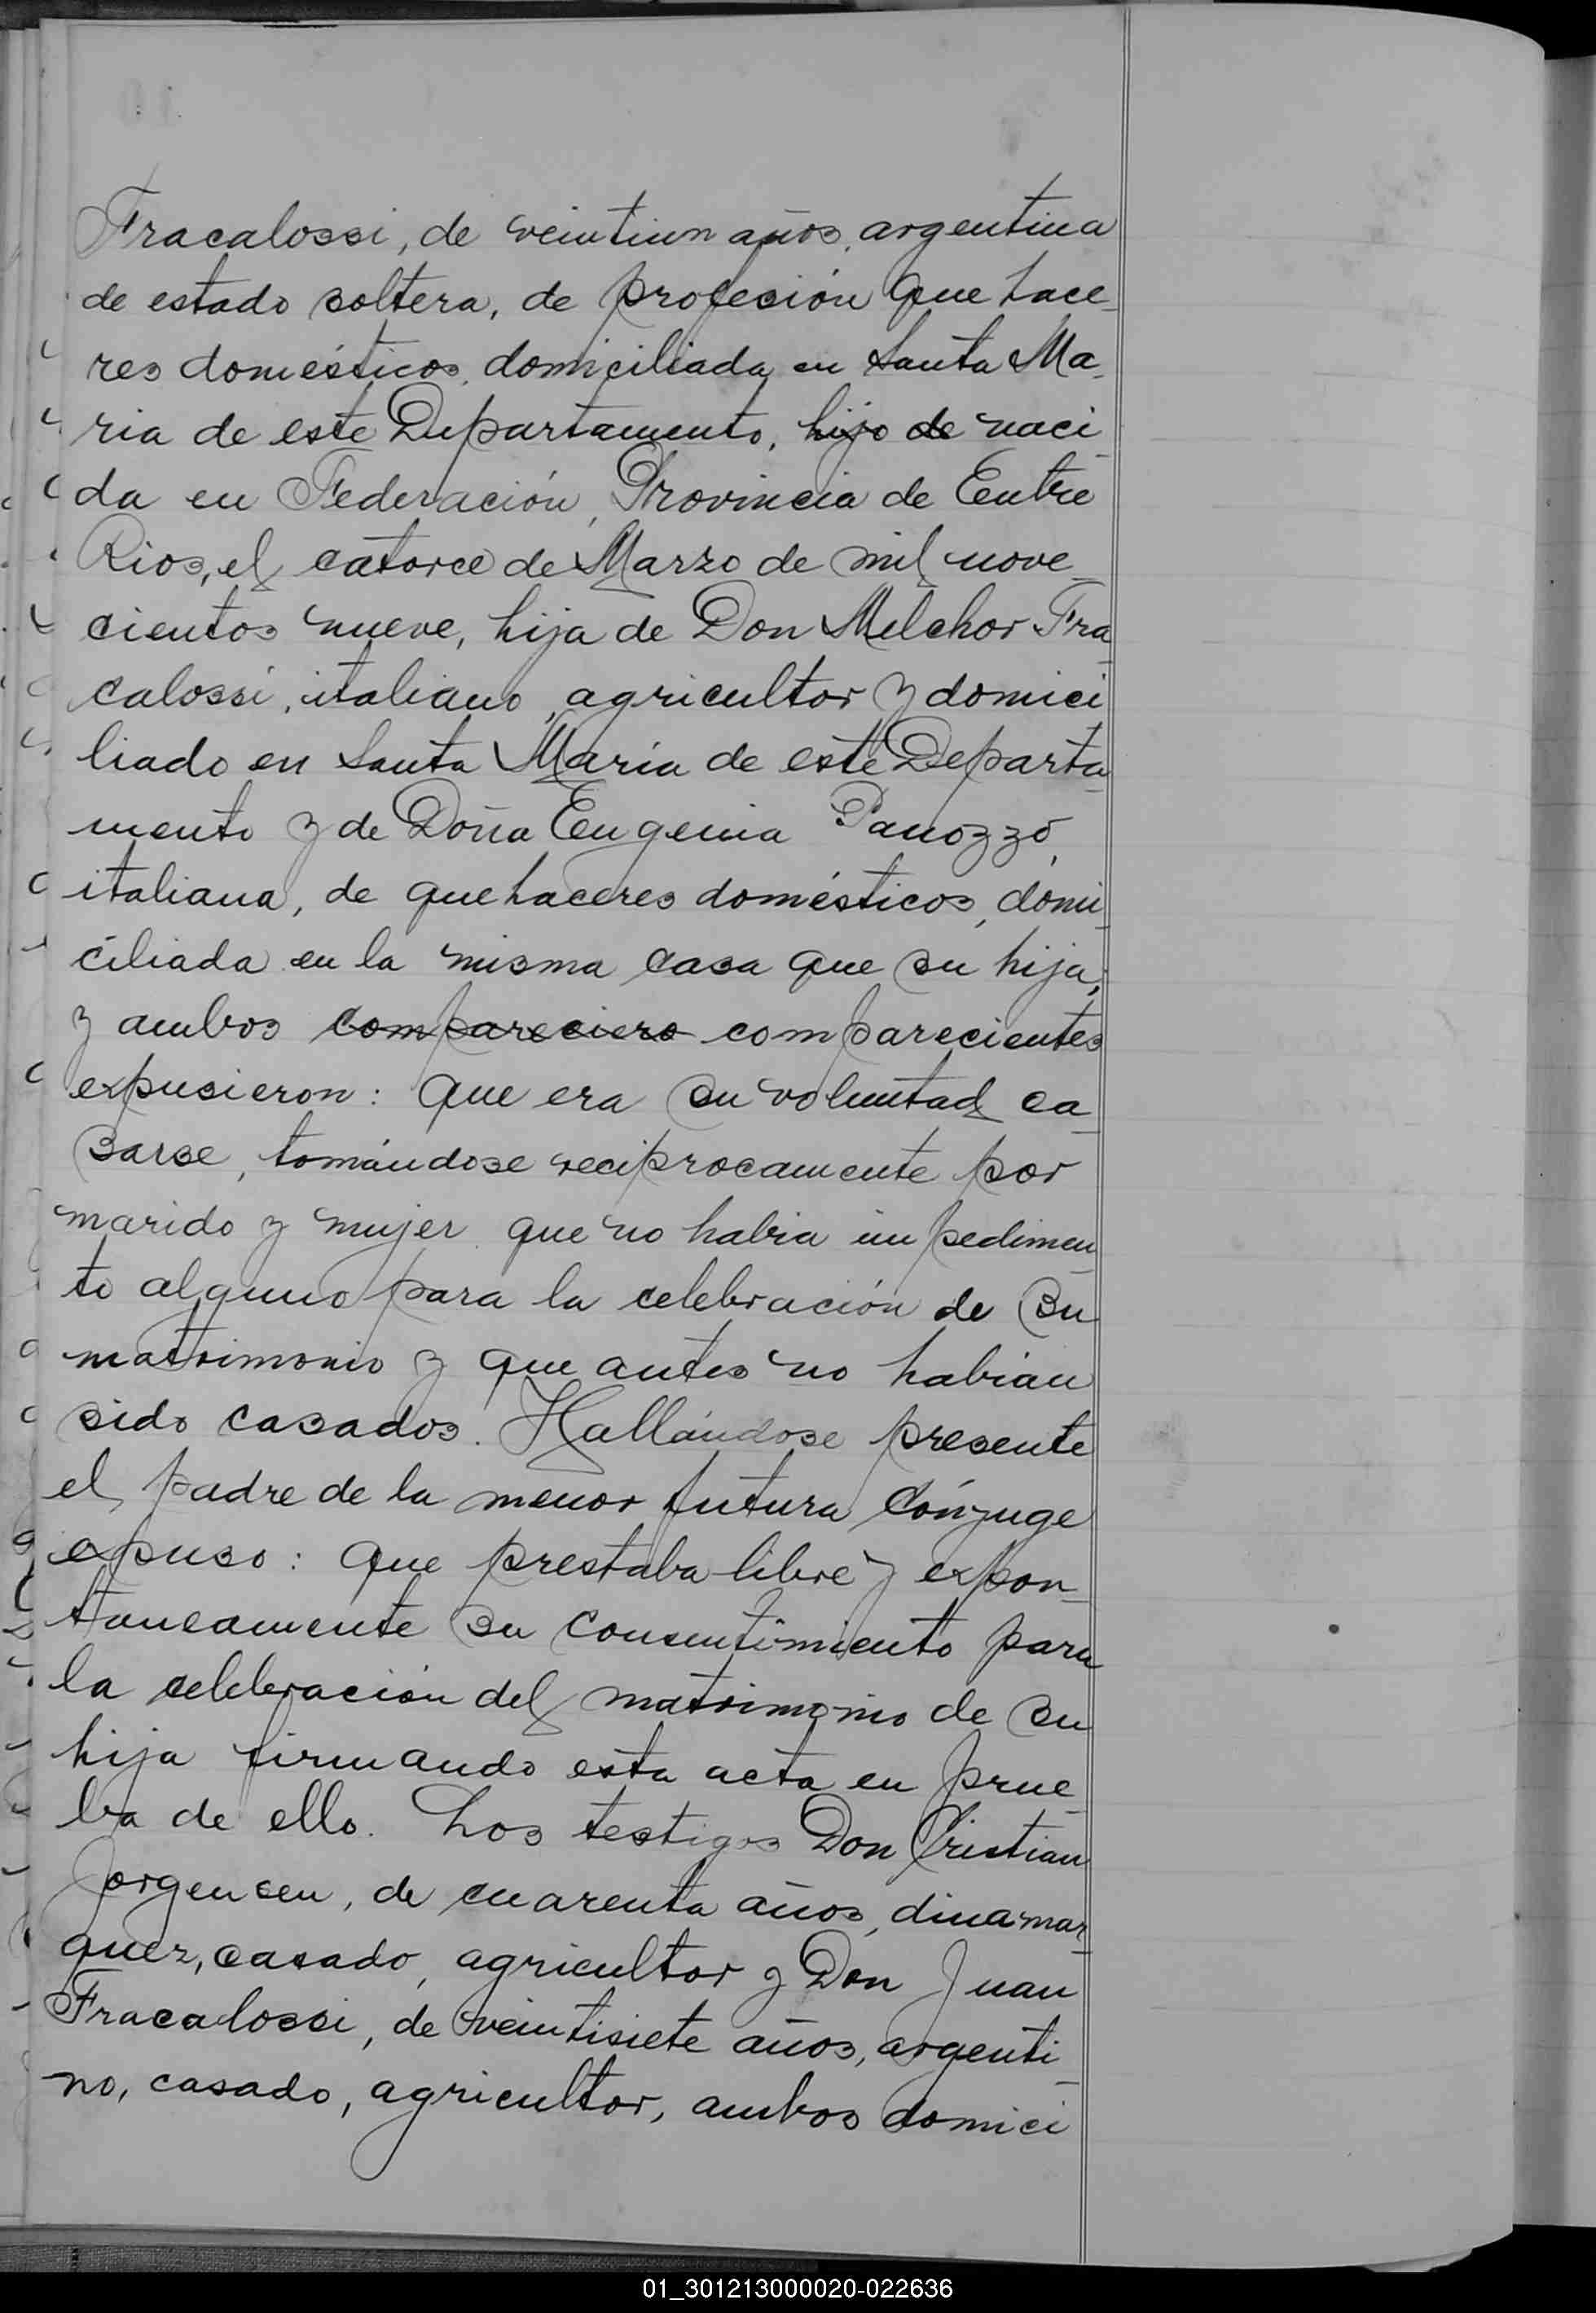 Fracalossi, de veintiun años, argentina
de estado soltera, de profesión que hace-
res domésticos, domiciliada en Santa Ma-
ria de este Departamento, hijo de naci-
da en Federación, Provincia de Entre
Rios, el catorce de Marzo de mil nove-
cientos nueve, hija de Don Melchor Fra-
calossi, italiano, agricultor y domici-
liado en Santa María de este Departa-
mento y de Doña Eugenia Panozzo,
italiana, de quehaceres domésticos, domi-
ciliada en la misma casa que su hija,
y ambos compareciero comparecientes
expusieron: que era su voluntad ca-
sarse, tomándose reciprocamente por
marido y mujer que no habia impedimen-
to alguno para la celebración de su
matrimonio y que antes no habian
sido casados. Hallándose presente
el padre de la menor futura cónyuge
expuso: que prestaba libre y expon-
taneamente su consentimiento para
la celebración del matrimonio de su
hija firmando esta acta en prue-
ba de ello. Los testigos Don Cristian
Jorgensen, de cuarenta años, dinamar-
quez, casado, agricultor y Don Juan
Fracalossi, de veintisiete años, argenti-
no, casado, agricultor, ambos domici
01_301213000020-022636